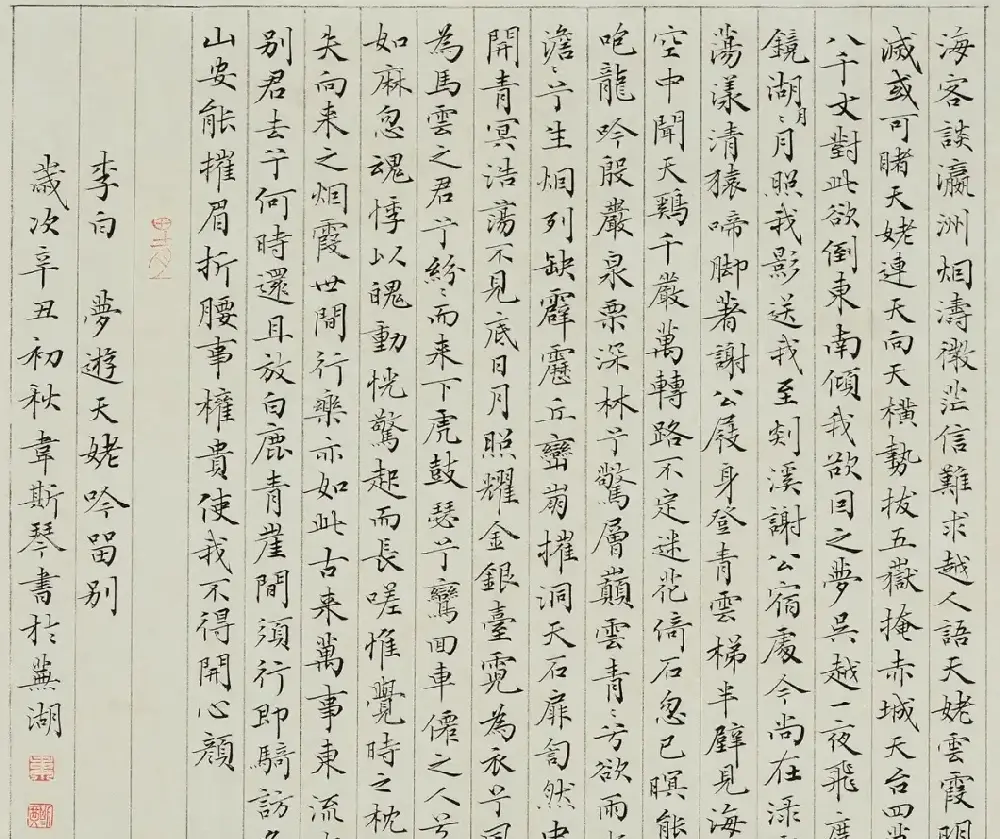 海客談瀛洲烟濤微茫信難求越人語天姥雲霞明
滅或可睹天姥連天向天橫勢拔五嶽掩赤城天台四
八千丈對此欲倒東南傾我欲因之夢吳越一夜飛度
鏡湖月〻月照我影送我至剡溪謝公宿處今尚在淥
蕩漾清猿啼脚著謝公屐身登青雲梯半壁見海
空中聞天鷄千巖萬轉路不定迷花倚石忽已暝熊
咆龍吟殷巖泉栗深林兮驚層巔雲青〻兮欲雨
澹〻兮生烟列缺霹靂丘巒崩摧洞天石扉訇然中
開青冥浩蕩不見底日月照耀金銀臺霓為衣兮
為馬雲之君兮紛〻而来下虎鼓瑟兮鸞回車僊之人兮
如麻忽魂悸以魄動恍驚起而長嗟惟覺時之枕
失向来之烟霞世間行樂亦如此古来萬事東流
别君去兮何時還且放白鹿青崖間須行即騎訪
山安能摧眉折腰事權貴使我不得開心顔
李白 夢遊天姥吟留别
歲次辛丑初秋韋斯琴書於蕪湖